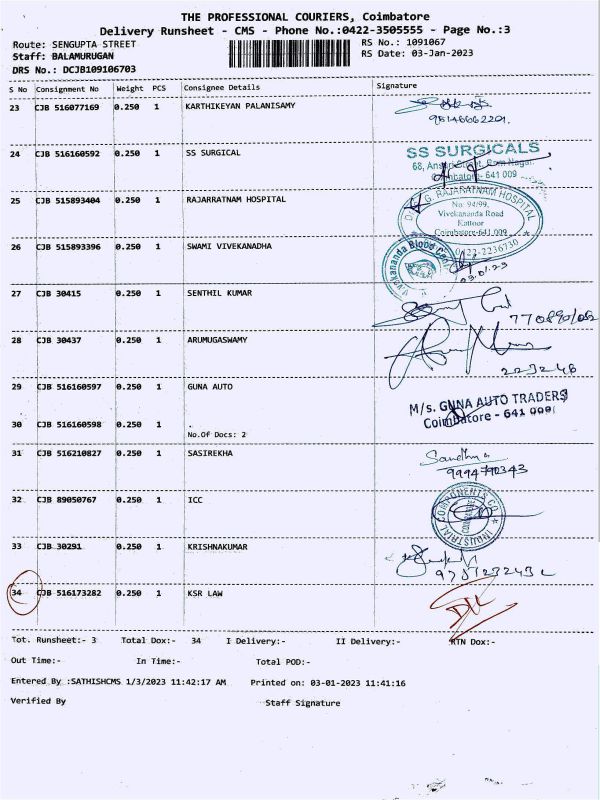 THE PROFESSIONAL COURIERS, Coimbatore
Delivery Runsheet - CMS - Phone No.:0422-3505555 - Page No.:3
Route: SENGUPTA STREET
RS No.: 1091067
Staff: BALAMURUGAN
RS Date: 03-Jan-2023
DRS No.: DCJB109106703
S No Consignment No Weight PCS Consignee Details Signature
23 CJB 516077169 0.250 1 KARTHIKEYAN PALANISAMY
24 CJB 516160592 0.250 1 SS SURGICAL
SS SURGICALS
Coimbatore - 641 009
25 CJB 515893404 0.250 1 RAJARRATNAM HOSPITAL
G. RAJARATNAM HOSPITAL
No: 94/99,
Vivekananda Road
Kattoor
Coimbatore-641 009
0422-2236730
26 CJB 515893396 0.250 1 SWAMI VIVEKANADHA
Vivekananda Blood
27 CJB 30415 0.250 1 SENTHIL KUMAR
28 CJB 30437 0.250 1 ARUMUGASWAMY
29 CJB 516160597 0.250 1 GUNA AUTO
M/s. GUNA AUTO TRADERS
Coimbatore - 641 009
30 CJB 516160598 0.250 1 .
No.Of Docs: 2
31 CJB 516210827 0.250 1 SASIREKHA
Sandhya
9994790343
32 CJB 89050767 0.250 1 ICC
INDUSTRIAL COMPONENTS CO
COIMBATORE
33 CJB 30291 0.250 1 KRISHNAKUMAR
34 CJB 516173282 0.250 1 KSR LAW
Tot. Runsheet:- 3 Total Dox:- 34 I Delivery:- II Delivery:- RTN Dox:-
Out Time:- In Time:- Total POD:-
Entered By :SATHISHCMS 1/3/2023 11:42:17 AM Printed on: 03-01-2023 11:41:16
Verified By Staff Signature